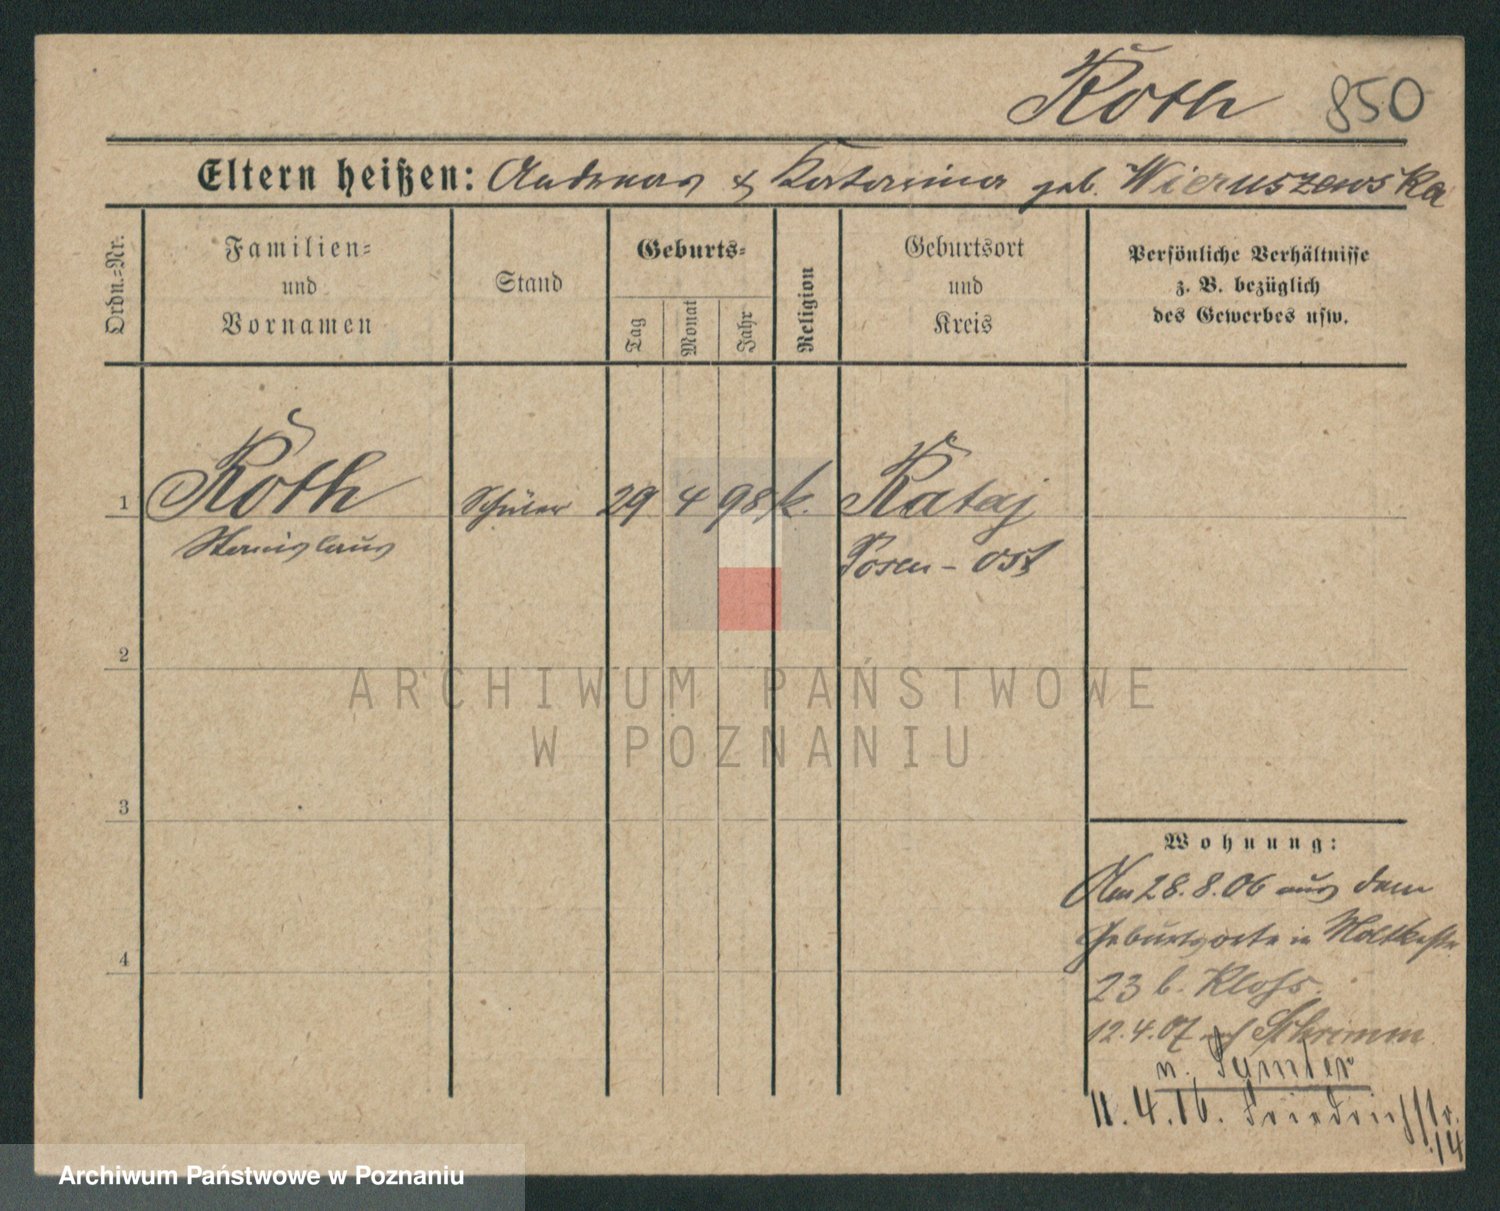 Roth 850
Eltern heißen: Andreas & Katarina geb. Wieruszewska
Ordn.=Nr.
Familien=
und
Vornamen
Stand
Geburts=
Tag
Monat
Jahr
Religion
Geburtsort
und
Kreis
Persönliche Verhältnisse
z. B. bezüglich
des Gewerbes usw.
1 Roth Schüler 29 4 98 k. Rataj
Stanislaus Posen - Ost
2
ARCHIWUM PAŃSTWOWE
W POZNANIU
3
Wohnung:
Am 28.8.06 aus dem
Geburtsorte in Moltkestr.
4
23 b. Kloss.
12.4.07 nach Schrimm
n.
11.4.16. Friedrichstr.
14
Archiwum Państwowe w Poznaniu